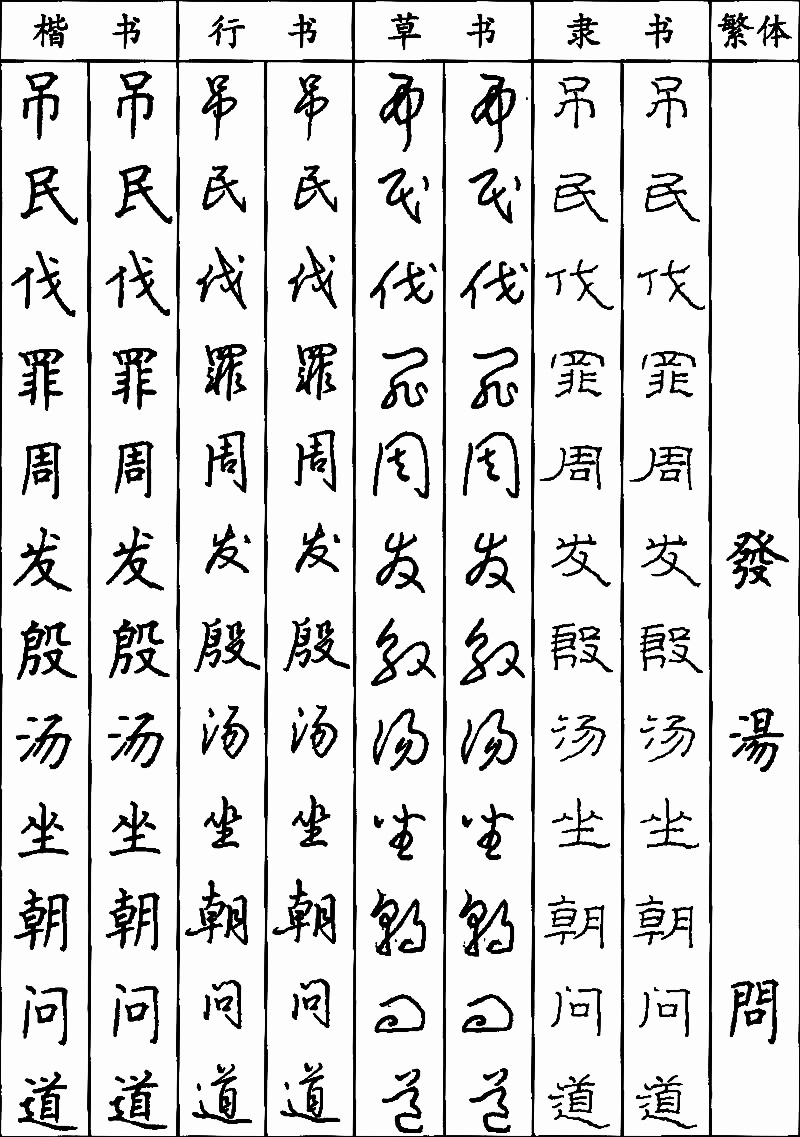 楷书 行书 草书 隶书 繁体
吊 吊 吊 吊 吊 吊 吊 吊
民 民 民 民 民 民 民 民
伐 伐 伐 伐 伐 伐 伐 伐
罪 罪 罪 罪 罪 罪 罪 罪
周 周 周 周 周 周 周 周
发 发 发 发 发 发 发 发 發
殷 殷 殷 殷 殷 殷 殷 殷
汤 汤 汤 汤 汤 汤 汤 汤 湯
坐 坐 坐 坐 坐 坐 坐 坐
朝 朝 朝 朝 朝 朝 朝 朝
问 问 问 问 问 问 问 问 問
道 道 道 道 道 道 道 道